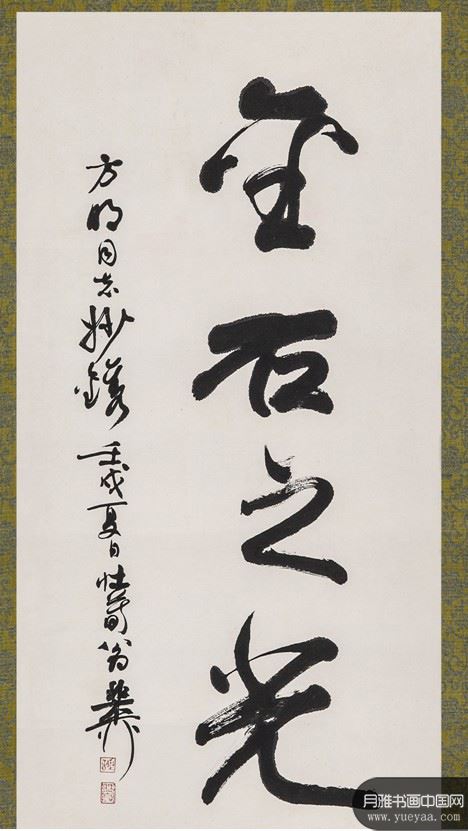 金石之光
方明同志妙鐫 壬戌夏日壯暮翁稚柳
月雅书画中国网
www.yueyaa.com